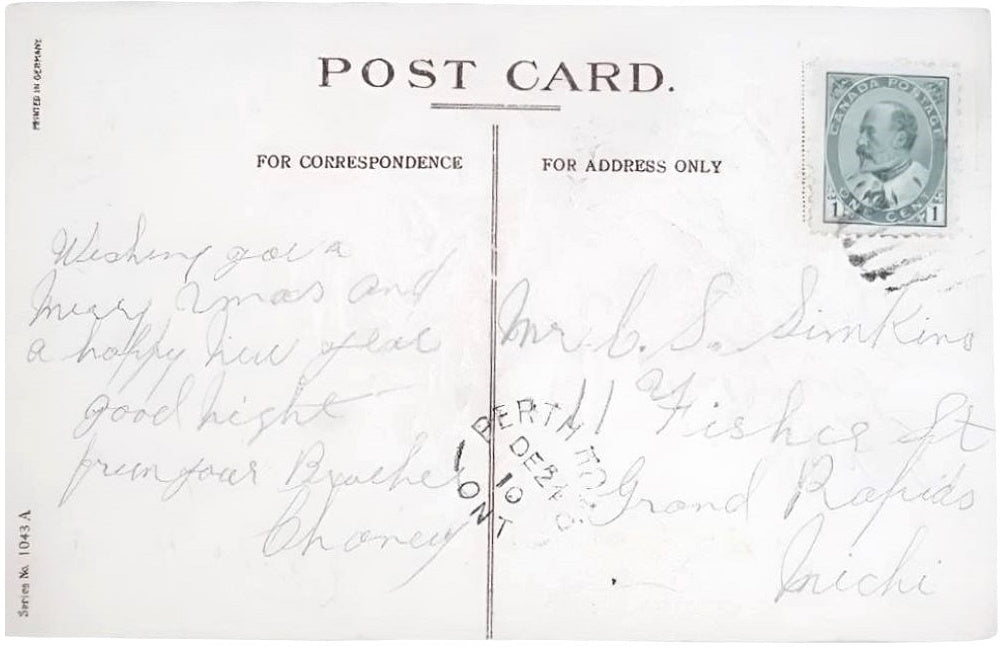 PRINTED IN GERMANY
POST CARD.
CANADA POSTAGE
ONE CENT
1 1
FOR CORRESPONDENCE
FOR ADDRESS ONLY
Wishing you a
Merry Xmas and
a happy New year
good night
from your Brother
Choncy
Mr. C. S. Simkins
11 Fisher St
Grand Rapids
Michi
BERTH
DE 24
10
ONT
Series No. 1043 A